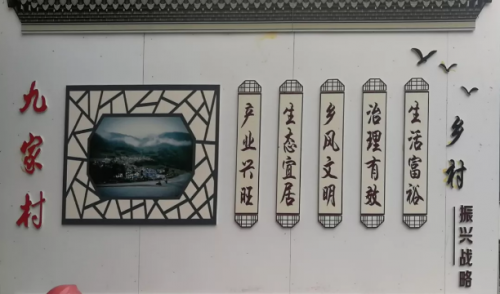 九家村
产业兴旺
生态宜居
乡风文明
治理有效
生活富裕
乡村
振兴战略